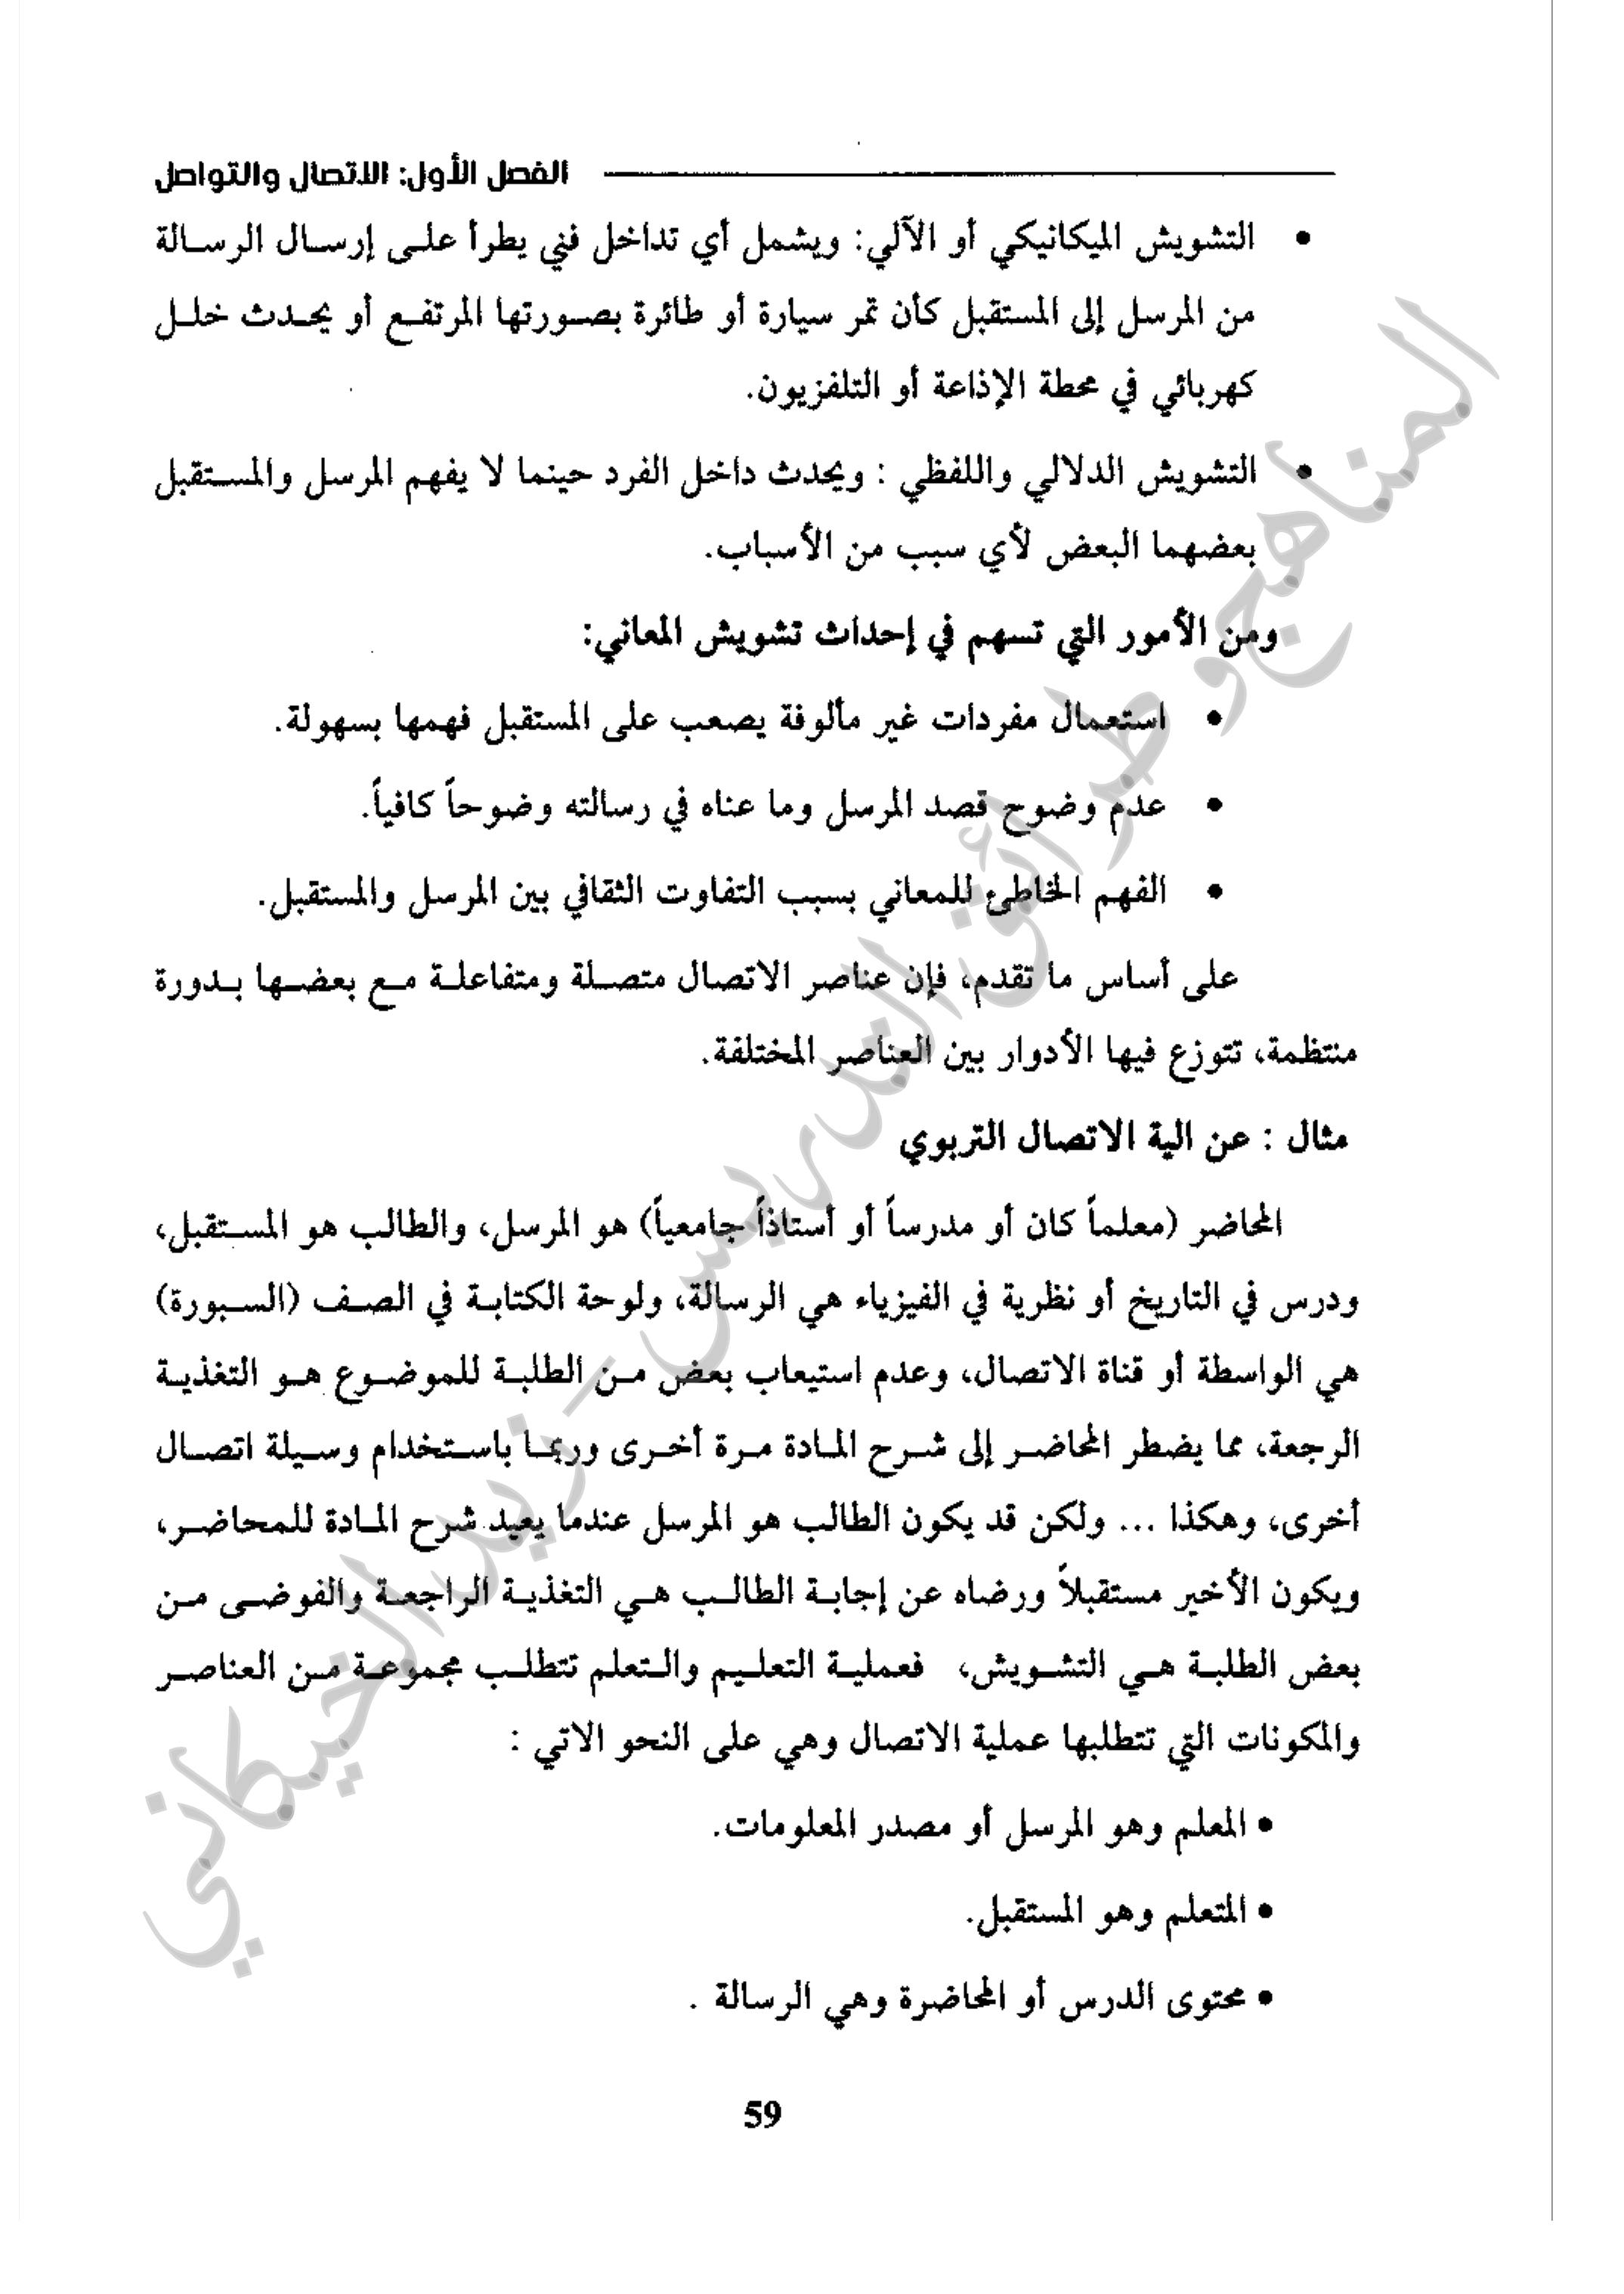 الفصل الأول: الاتصال والتواصل
• التشويش الميكانيكي أو الآلي: ويشمل أي تداخل فني يطرأ على إرسال الرسالة
من المرسل إلى المستقبل كأن تمر سيارة أو طائرة بصورتها المرتفع أو يحدث خلل
كهربائي في محطة الإذاعة أو التلفزيون.
• التشويش الدلالي واللفظي : ويحدث داخل الفرد حينما لا يفهم المرسل والمستقبل
بعضهما البعض لأي سبب من الأسباب.
ومن الأمور التي تسهم في إحداث تشويش المعاني:
• استعمال مفردات غير مألوفة يصعب على المستقبل فهمها بسهولة.
• عدم وضوح قصد المرسل وما عناه في رسالته وضوحاً كافياً.
• الفهم الخاطئ للمعاني بسبب التفاوت الثقافي بين المرسل والمستقبل.
على أساس ما تقدم، فإن عناصر الاتصال متصلة ومتفاعلة مع بعضها بدورة
منتظمة، تتوزع فيها الأدوار بين العناصر المختلفة.
مثال : عن الية الاتصال التربوي
المحاضر (معلماً كان أو مدرساً أو أستاذاً جامعياً) هو المرسل، والطالب هو المستقبل،
ودرس في التاريخ أو نظرية في الفيزياء هي الرسالة، ولوحة الكتابة في الصف (السبورة)
هي الواسطة أو قناة الاتصال، وعدم استيعاب بعض من الطلبة للموضوع هو التغذية
الرجعة، مما يضطر المحاضر إلى شرح المادة مرة أخرى وربما باستخدام وسيلة اتصال
أخرى، وهكذا ... ولكن قد يكون الطالب هو المرسل عندما يعيد شرح المادة للمحاضر،
ويكون الأخير مستقبلاً ورضاه عن إجابة الطالب هي التغذية الراجعة والفوضى من
بعض الطلبة هي التشويش، فعملية التعليم والتعلم تتطلب مجموعة من العناصر
والمكونات التي تتطلبها عملية الاتصال وهي على النحو الاتي :
• المعلم وهو المرسل أو مصدر المعلومات.
• المتعلم وهو المستقبل.
• محتوى الدرس أو المحاضرة وهي الرسالة .
59
المناهج وطرائق التدريس - زيد الخيكاني